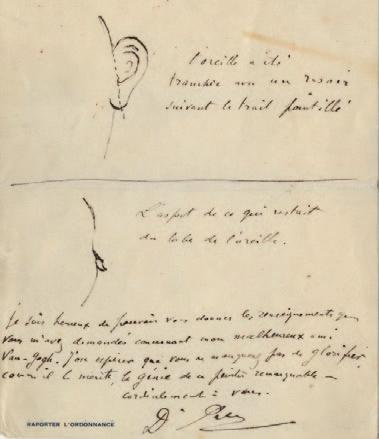 l'oreille a été
tranchée avec un rasoir
suivant le trait pointillé
L'aspect de ce qui restait
du lobe de l'oreille.
Je suis heureux de pouvoir vous donner les renseignements que
vous m'avez demandés concernant mon malheureux ami
Van-Gogh. J'ose espérer que vous ne manquerez pas de glorifier
comme il le mérite, le génie de ce peintre remarquable –
cordialement à vous.
Dr Rey
RAPORTER L'ORDONNANCE